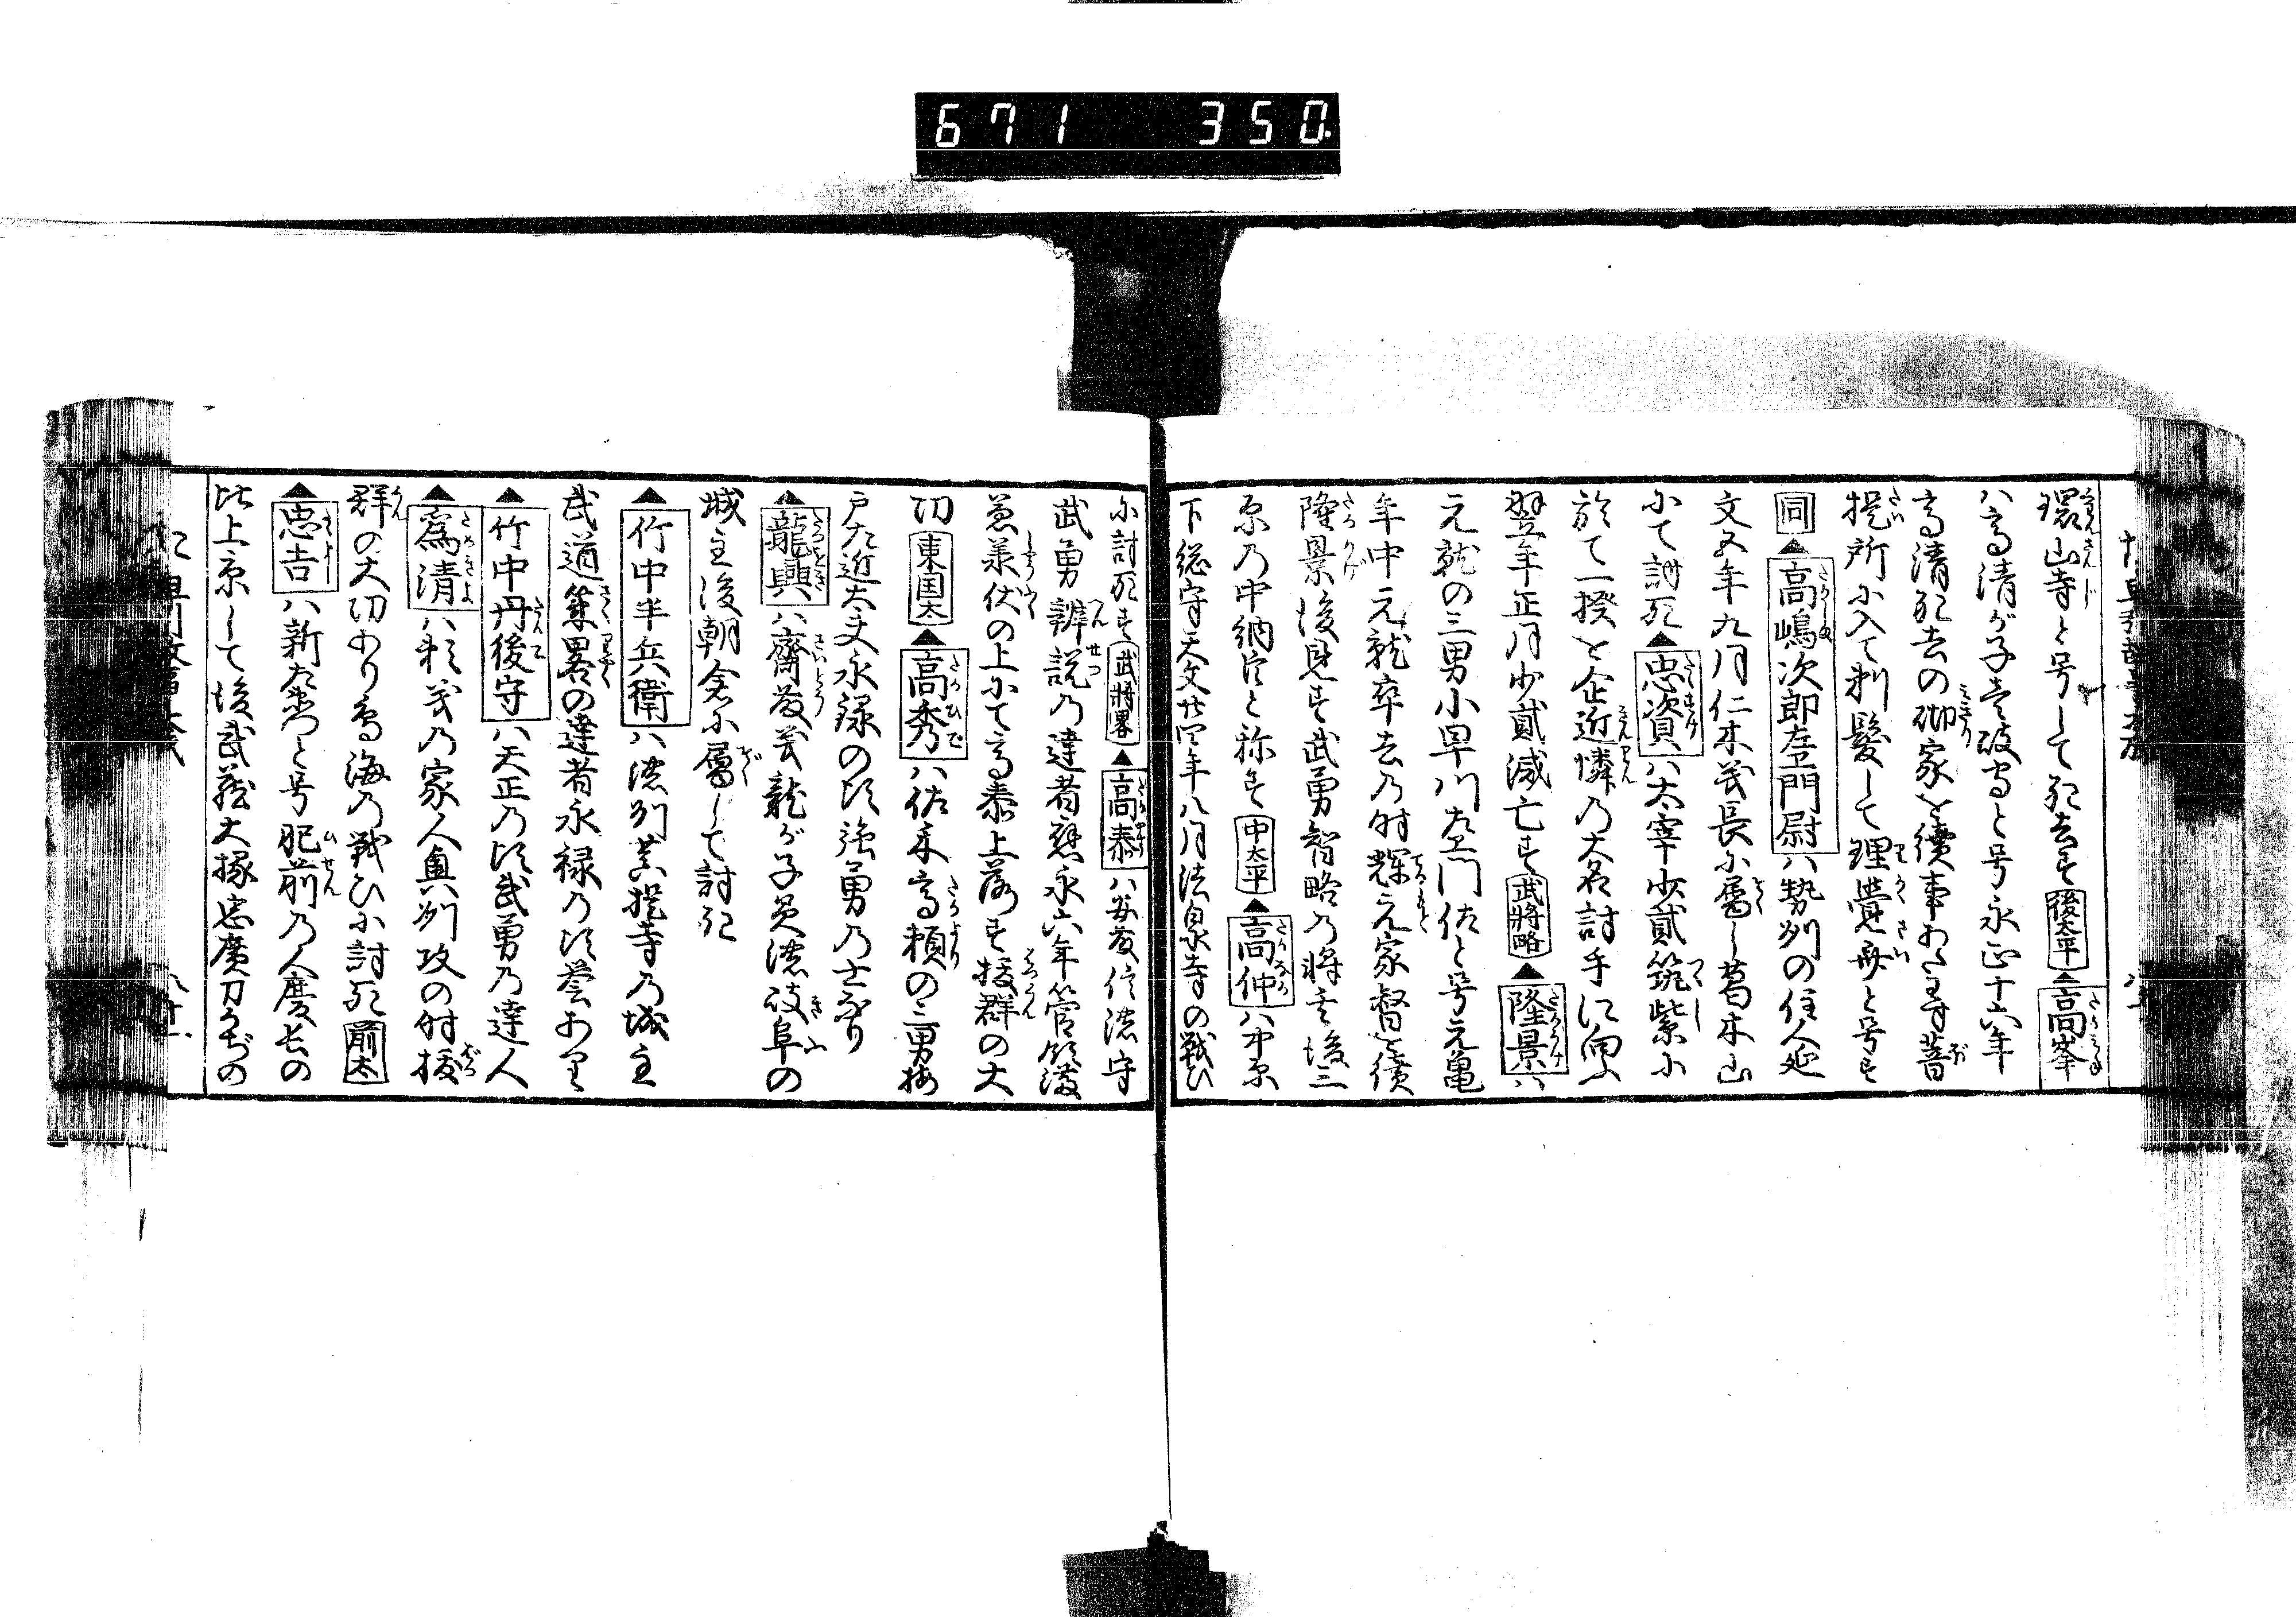 671 350.
環山寺と号して死去す後太平▲高峯
ハ高清が子壱岐守と号永正十六年
高清死去の砌家を續事わ主寺菩
提所に入て剃髪して理覺斎と号す
同▲高嶋次郎左エ門尉ハ勢州の住人延
文五年九月仁木義長に属し葛木山
にて討死▲忠資ハ太宰少貳筑紫に
於て一揆を企近憐の大名討手に向ふ
翌年正月少貳滅亡す武將略▲隆景ハ
元就の三男小早川左エ門佐と号元亀
年中元就卒去の时輝元家督を續
隆景後見す武勇智略の將也後三
原の中納言と称す中太平▲高仲ハ中原
下総守天文廿四年八月法泉寺の戦ひ
に討死す武將畧▲高泰ハ安藤信濃守
武勇辨説の達者應永六年管領満
兼蒸伏の上にて高泰上洛す抜群の大
切東国太▲高秀ハ佐々木高頼の二男梅
戸左近太夫永録の比強勇の士なり
▲龍興ハ齋藤義龍が子美濃岐阜の
城主後朝倉に属して討死
▲竹中半兵衛ハ濃州菩提寺の城主
武道策畧の達者永禄の比誉あり
▲竹中丹後守ハ天正の比武勇の達人
▲爲清ハ義の家人奥州攻の时抜
群の大切あり鳥海の戦ひに討死前太
▲忠吉ハ新左衛門と号肥前の人慶長の
比上京して後武藏大掾忠廣刀かぢの